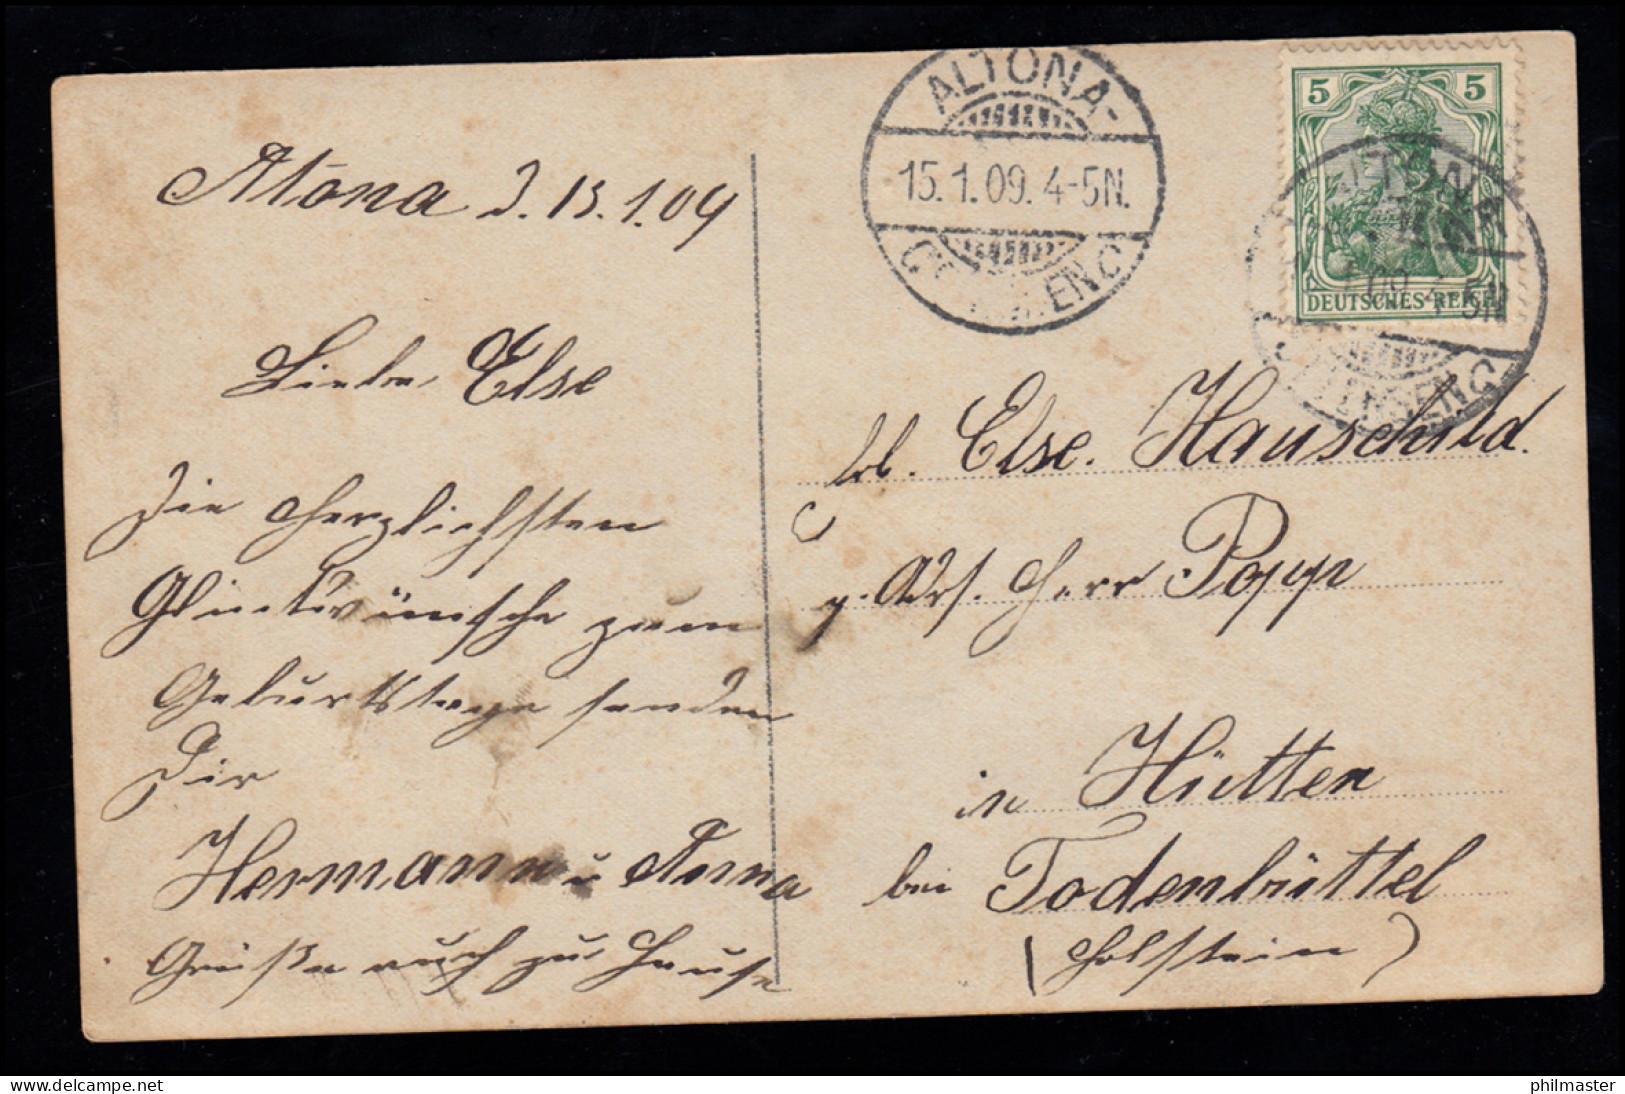 Altona d. 15.1.09
Liebe Else
Die herzlichsten
Glückwünsche zum
Geburtstage senden
Dir
Hermann u Anna
Grüße auch zu Hause
ALTONA-
15.1.09. 4-5N.
5 5
DEUTSCHES REICH
5N
Else Hauschild.
Adr. Herr Popp
in Hütten
bei Todenbüttel
(Holstein)
philmaster